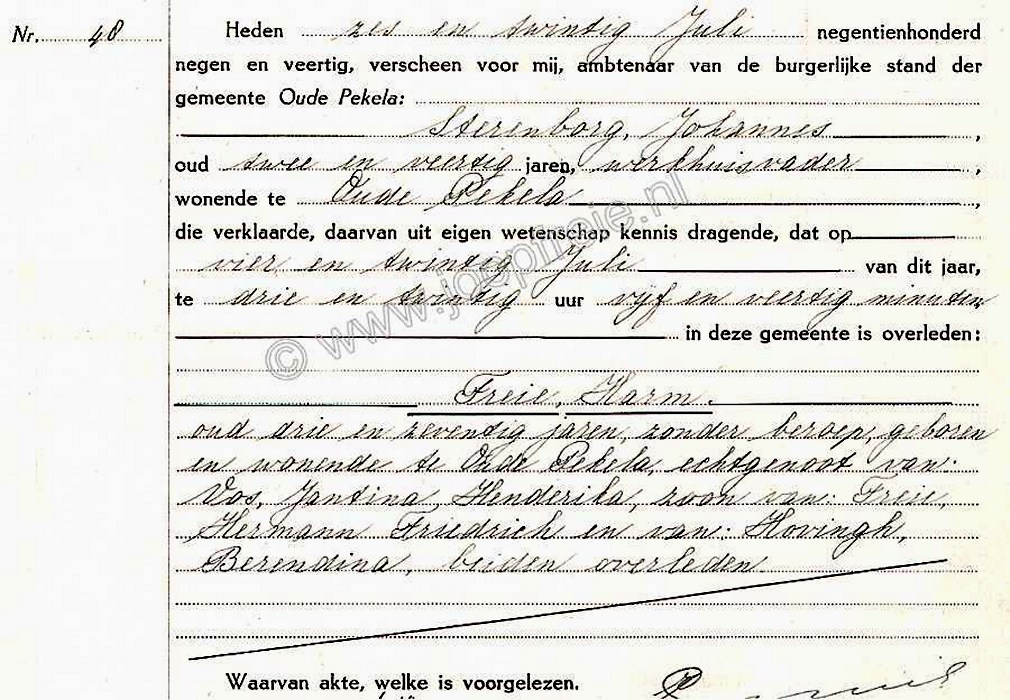 Nr. 48
Heden zes en twintig Juli negentienhonderd
negen en veertig, verscheen voor mij, ambtenaar van de burgerlijke stand der
gemeente Oude Pekela:
Sterenborg, Johannes,
oud twee en veertig jaren, werkhuisvader,
wonende te Oude Pekela,
die verklaarde, daarvan uit eigen wetenschap kennis dragende, dat op
vier en twintig Juli van dit jaar,
te drie en twintig uur vijf en veertig minuten
in deze gemeente is overleden:
© www.joopfraie.nl
Freie, Harm.
oud drie en zeventig jaren, zonder beroep, geboren
en wonende te Oude Pekela, echtgenoot van:
Vos, Jantina Henderika, zoon van: Freie,
Hermann Friedrich en van: Hovingh,
Berendina, beiden overleden.
Waarvan akte, welke is voorgelezen.